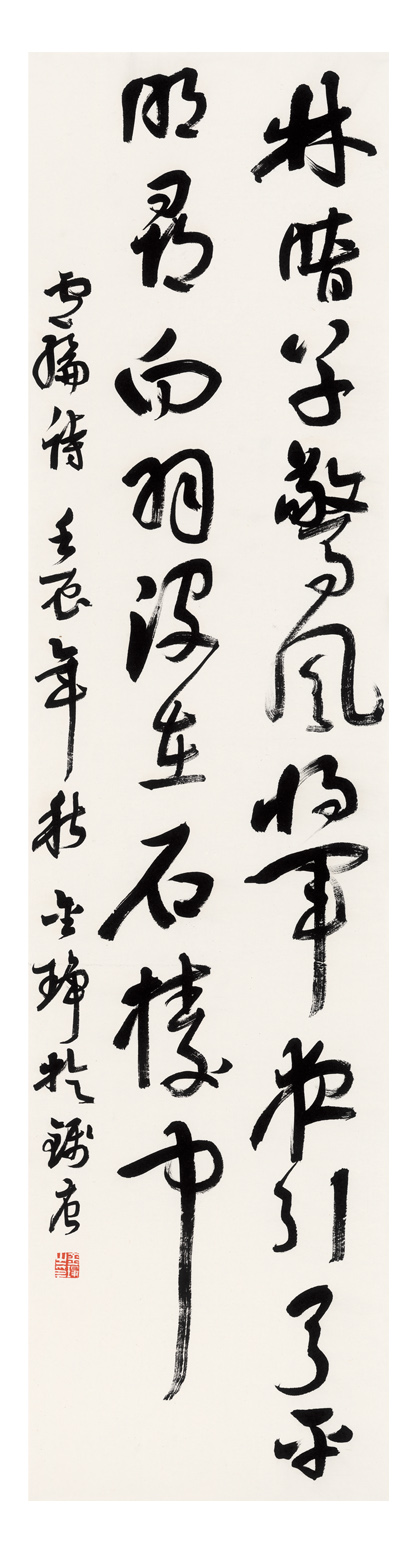 林暗草驚風将軍夜引弓平
明尋白羽沒在石棱中
盧綸詩 壬辰年秋 金琤於錢唐